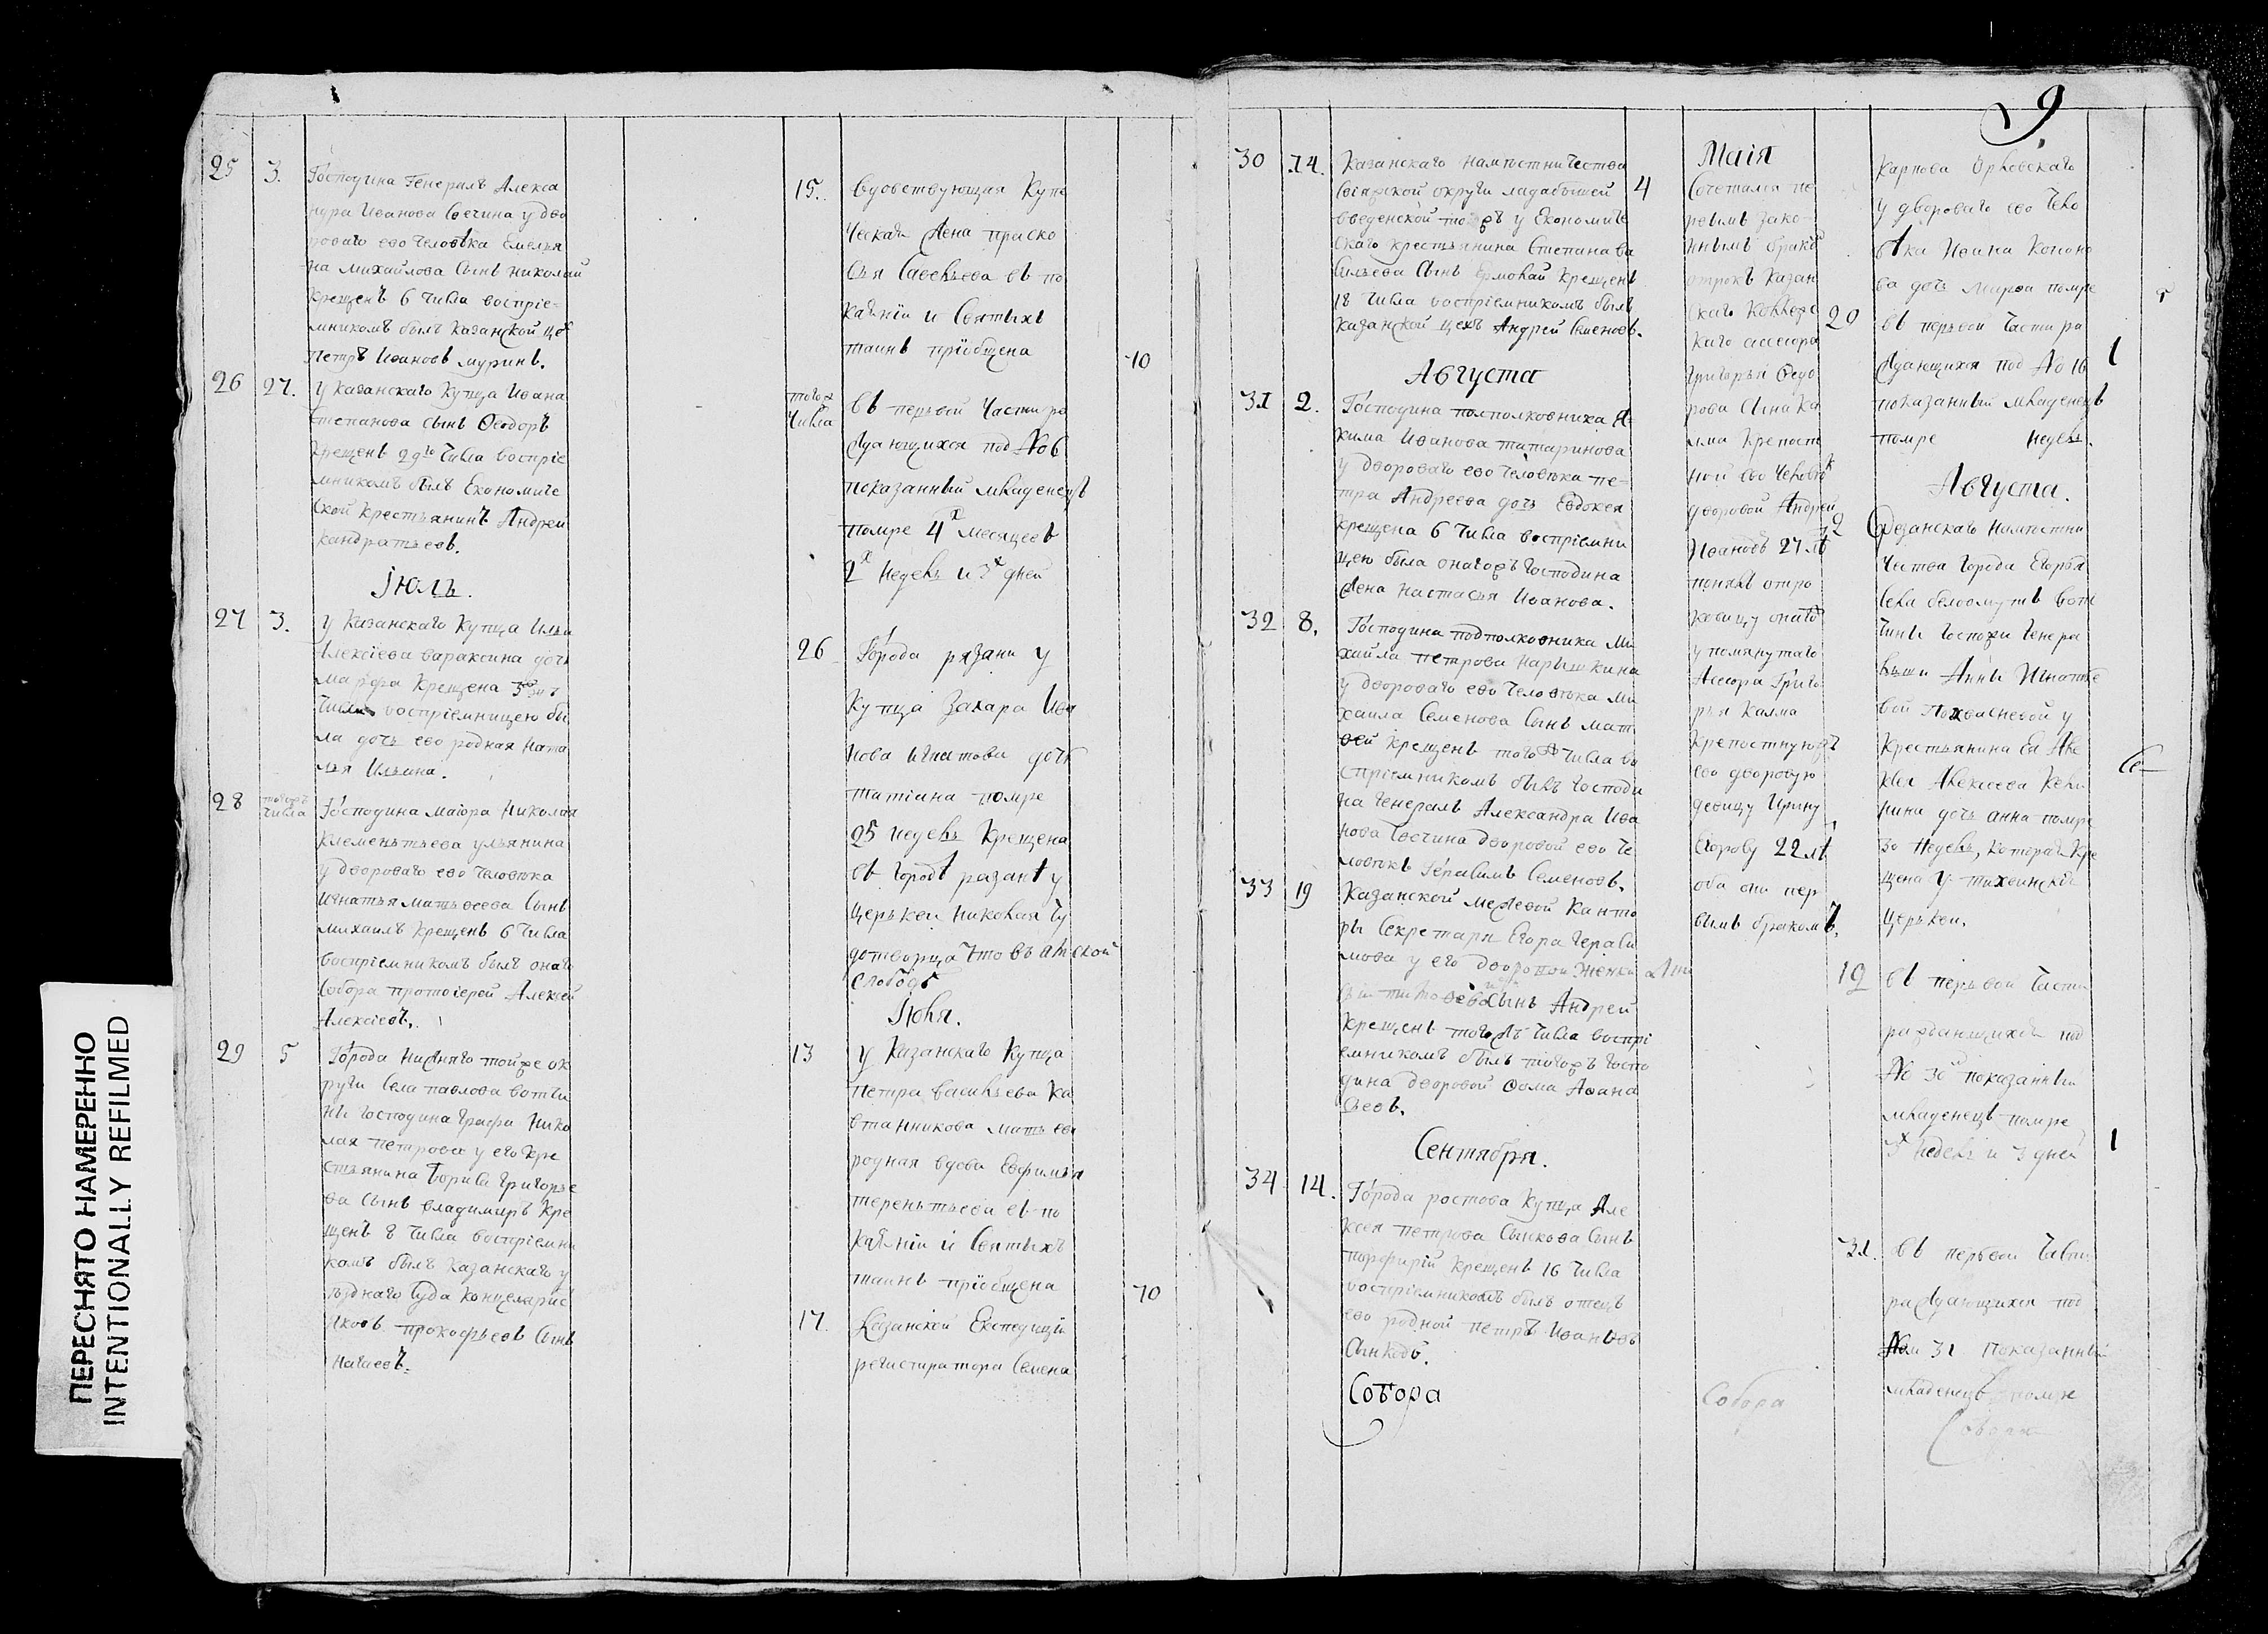 25 3. Господина Генералъ Алекса
ндра Иванова Свечина у дво
роваго ево человѣка Емелья
на Михайлова сынъ Николай
крещенъ 6 числа воспріе-
мникомъ былъ казанской цех
Петръ Ивановъ Муринъ.
26 27. у казанскаго купца Ивана
Степанова сынъ Ѳеодоръ
крещенъ 29го числа воспріе
мникомъ былъ Економиче
ской крестьянинъ Андрей
Кандратьевъ.
Іюль.
27 3. у Казанскаго купца Ильи
Алексіева Вараксина дочь
Марфа крещена
числа воспріемницею бы
ла дочь ево родная Ната
лья Ильина.
28 тогожъ числа Господина маіора Николая
Клеменьтьева Ульянина
у двороваго ево человѣка
Игнатья Матьвеева сынъ
Михаилъ крещенъ 6 числа
воспріемникомъ былъ онаго
Собора протоіерей Алексей
Алексіевъ.
29 5 Города Нижняго тойже ок
руги села Павлова вотчи
ны господина графа Нико
лая Петрова у его кре
стьянина Бориса Григорье
ва сынъ Владимиръ кре
щенъ 8 числа воспріемни
комъ былъ Казанскаго у
ѣзднаго суда концелярис
Яковъ Прокофьевъ сынъ
Нагаевъ.
15. Вдовствующая купе
ческая жена Праско
вья Савельева въ по
каяніи и Святыхъ
таинъ пріобщена 70
тогож числа въ первой части ро
ждающихся под No 6
показанный младенецъ
помре 4х месяцевъ
2х недель и 3х дней
26 Города Рязани у
купца Захара Ива
нова Игнатова дочь
Татіана помре
25 недель крещена
въ городѣ Рязанѣ у
церькви Николая Чу
дотворца что въ Ямской
слободѣ
Іюля.
13 у Казанскаго купца
Петра Васильева Ка
втанникова мать ево
родная вдова Евфимья
Тереньтьева въ по
каяніи и Святыхъ
таинъ пріобщена 70
17. Казанской Експедиціи
регистиратора Семена
9
30 14. Казанскаго намѣстничества
Свіяжской округи
Введенской тожъ у Економиче
скаго крестьянина Степана Ва
сильева сынъ Ермолай крещенъ
18 числа воспріемникомъ былъ
казанской цехъ Андрей Семеновъ.
Августа
31 2. Господина полполковника Я
кима Иванова Татаринова
у двороваго ево человѣка Пе-
тра Андреева дочь Евдокея
крещена 6 числа воспріемни
цею была онагожъ господина
жена Настасья Иванова.
32 8. Господина подполковника Ми
хайла Петрова Нарышкина
у двороваго ево человѣка Ми
хаила Семенова сынъ Мат
вей крещенъ тогожъ числа во
спріемникомъ былъ господи
на генералъ Александра Ива
нова Свечина дворовой ево че
ловѣкъ Герасимъ Семеновъ.
33 19 Казанской межевой канто
ры секретаря Егора Гераси
мова у его дворовой женки
сынъ Андрей
крещенъ тогожъ числа воспрі
емникомъ былъ тогожъ госпо
дина дворовой Фома Афана
сьевъ.
Сентября.
34 14. Города Ростова купца Але
ксея Петрова Сынкова сынъ
Порфирій крещенъ 16 числа
воспріемникомъ былъ отецъ
ево родной Петръ Ивановъ
Сынковъ.
Собора
Маія
4 Сочетался пе
рвымъ зако-
ннымъ бракъ
отрокъ казан
скаго коллеже
скаго ассесора
Григорья Федо
рова сына Ка
лма крепост
ной ево человѣкъ
дворовой Андрей
Ивановъ 27 лѣ
понялъ отро
ковицу онаго
у помянутаго
Ассесора Григо
рья Калма
крепостнуюжъ
ево дворовую
девицу Ирину
Егорову 22 лѣ
оба они пер
вымъ бракомъ.
Собора
Карпова Орловскаго
у двороваго ево чело
вѣка Ивана Конона
ва дочь Марѳа помре
20 въ первой части ра
ждающихся под No 16 1
показанный младенецъ
помре недель.
Августа.
2 Резанскаго намѣстни
чества города Егорья
села Белоомутъ вотчи
чины госпожи генера
льши Анны Игнатье
вой у
крестьянина ея Але
ксея Алексеева
дочь Анна помре
30 недель, которая кре
щена у Тихвинскіе
церькви.
19 въ первой части
раждающихся под
No 30 показанный
младенецъ помре
3х недель и 3 дней 1
31. въ первой части
раждающихся под
Noм 31 показанный
младенецъ помре
Собора
ПЕРЕСНЯТО НАМЕРЕННО
INTENTIONALLY REFILMED